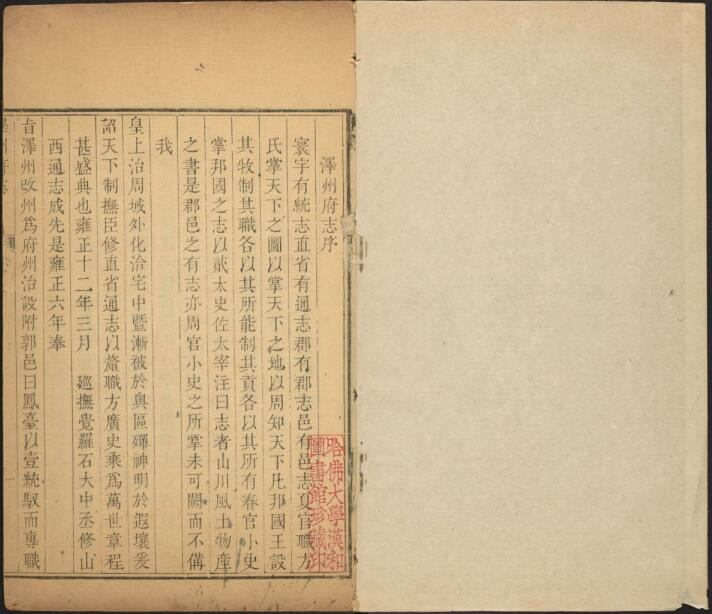 澤州府志序
寰宇有統志直省有通志郡有郡志邑有邑志夏官職方
氏掌天下之圖以掌天下之地以周知天下凡邦國王設
其牧制其職各以其所能制其貢各以其所有春官小史
掌邦國之志以貳太史佐太宰注曰志者山川風土物産
之書是郡邑之有志亦周官小史之所掌未可闕而不備
我
皇上治周域外化洽宅中暨漸被於輿區殫神明於遐壤爰
詔天下制撫臣修直省通志以備職方廣史乘爲萬世章程
甚盛典也雍正十二年三月 廵撫覺羅石大中丞修山
西通志成先是雍正六年奉
旨澤州改州爲府州治設附郭邑曰鳳臺以壹統馭而專職
澤州府志
哈佛大學漢和
圖書館珍藏印